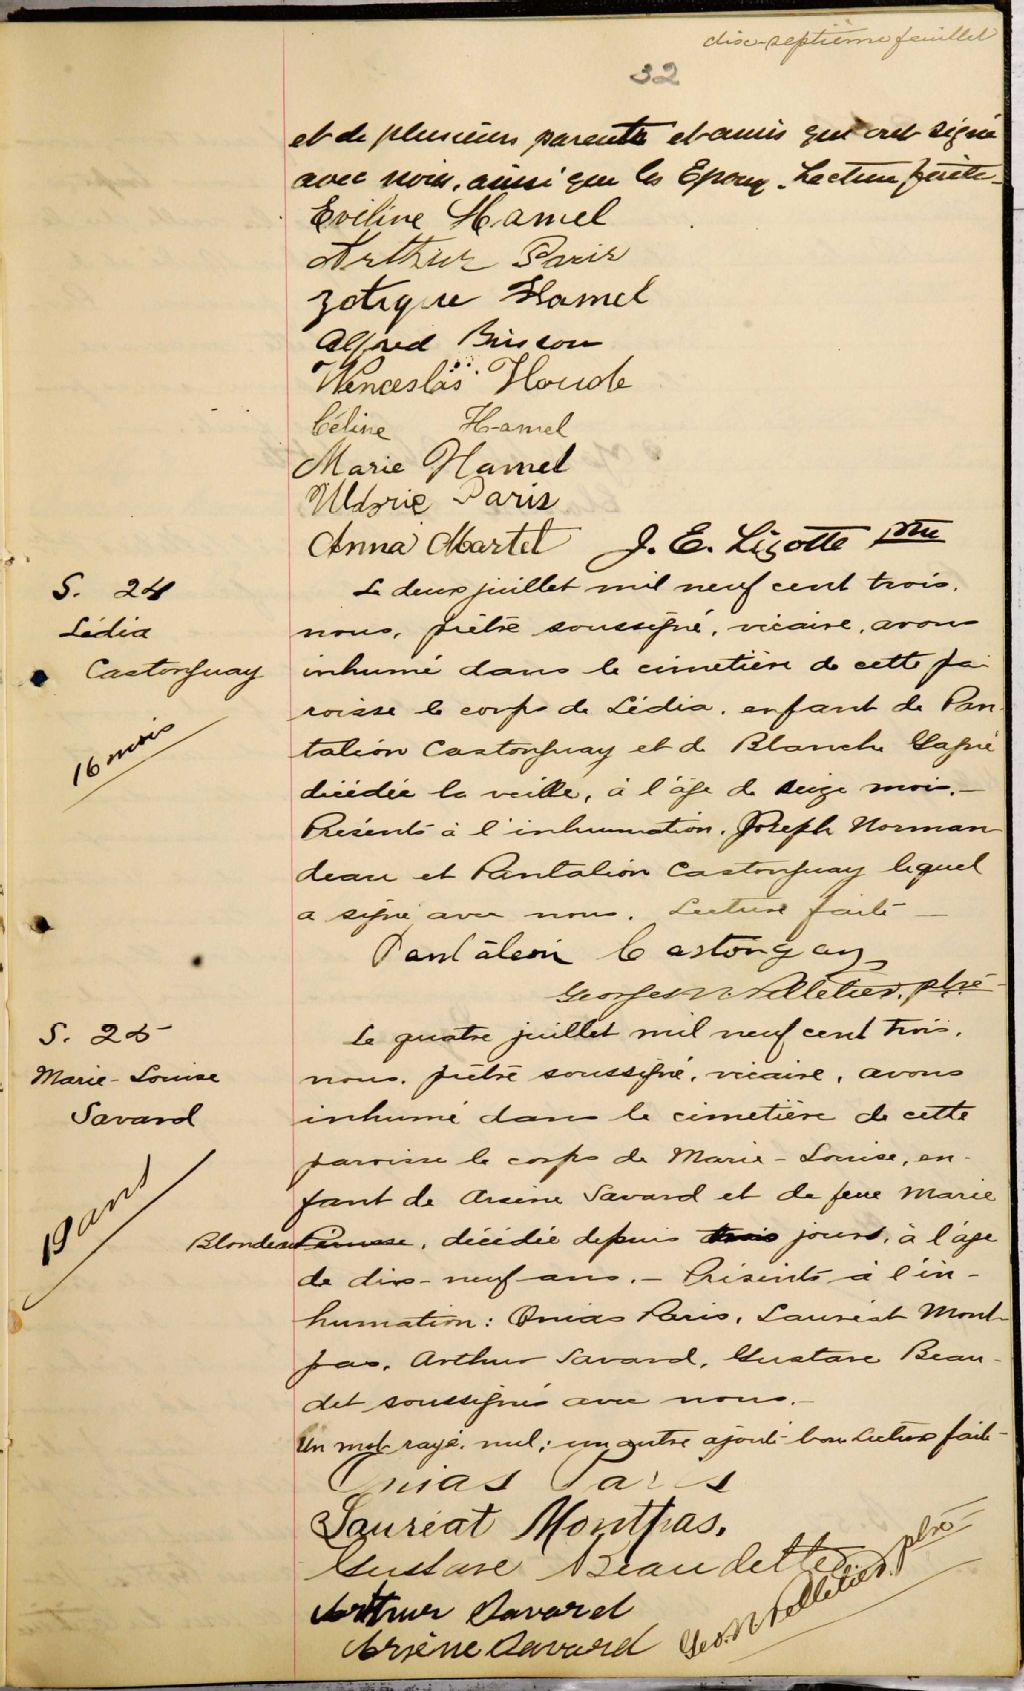 dix-septième feuillet
32
et de plusieurs parents et amis qui ont signé
avec nous, ainsi que les Epoux. Lecture faite.
Eveline Hamel
Arthur Paris
Zotique Hamel
Alfred Brisson
Wenceslas Houde
Céline Hamel
Marie Hamel
Paris
Anna Martel J. E. Lizotte ptre
S. 24
Lédia
Castonguay
16 mois
Le deux juillet mil neuf cent trois,
nous, prêtre soussigné, vicaire, avons
inhumé dans le cimetière de cette pa-
roisse le corps de Lédia, enfant de Pan-
taléon Castonguay et de Blanche Gagné
décédée la veille, à l'âge de seize mois.—
Présents à l'inhumation, Joseph Norman-
deau et Pantaléon Castonguay lequel
a signé avec nous. Lecture faite —
Pantaleon Castonguay
Georges N. Pelletier, ptre
S. 25
Marie-Louise
Savard
19 ans
Le quatre juillet mil neuf cent trois,
nous, prêtre soussigné, vicaire, avons
inhumé dans le cimetière de cette
paroisse le corps de Marie-Louise, en-
fant de Arsène Savard et de feue Marie
Blondeau, décédée depuis trois jours, à l'âge
de dix-neuf ans.— Présents à l'in-
humation: Onias Paris, Lauréat Mont-
pas, Arthur Savard, Gustave Beau-
det soussignés avec nous.—
Un mot rayé, nul; un autre ajouté bon Lecture faite
Onias Paris
Lauréat Montpas.
Gustave Beaudette
Arthur Savard
Arsène Savard Geo. N. Pelletier, ptre